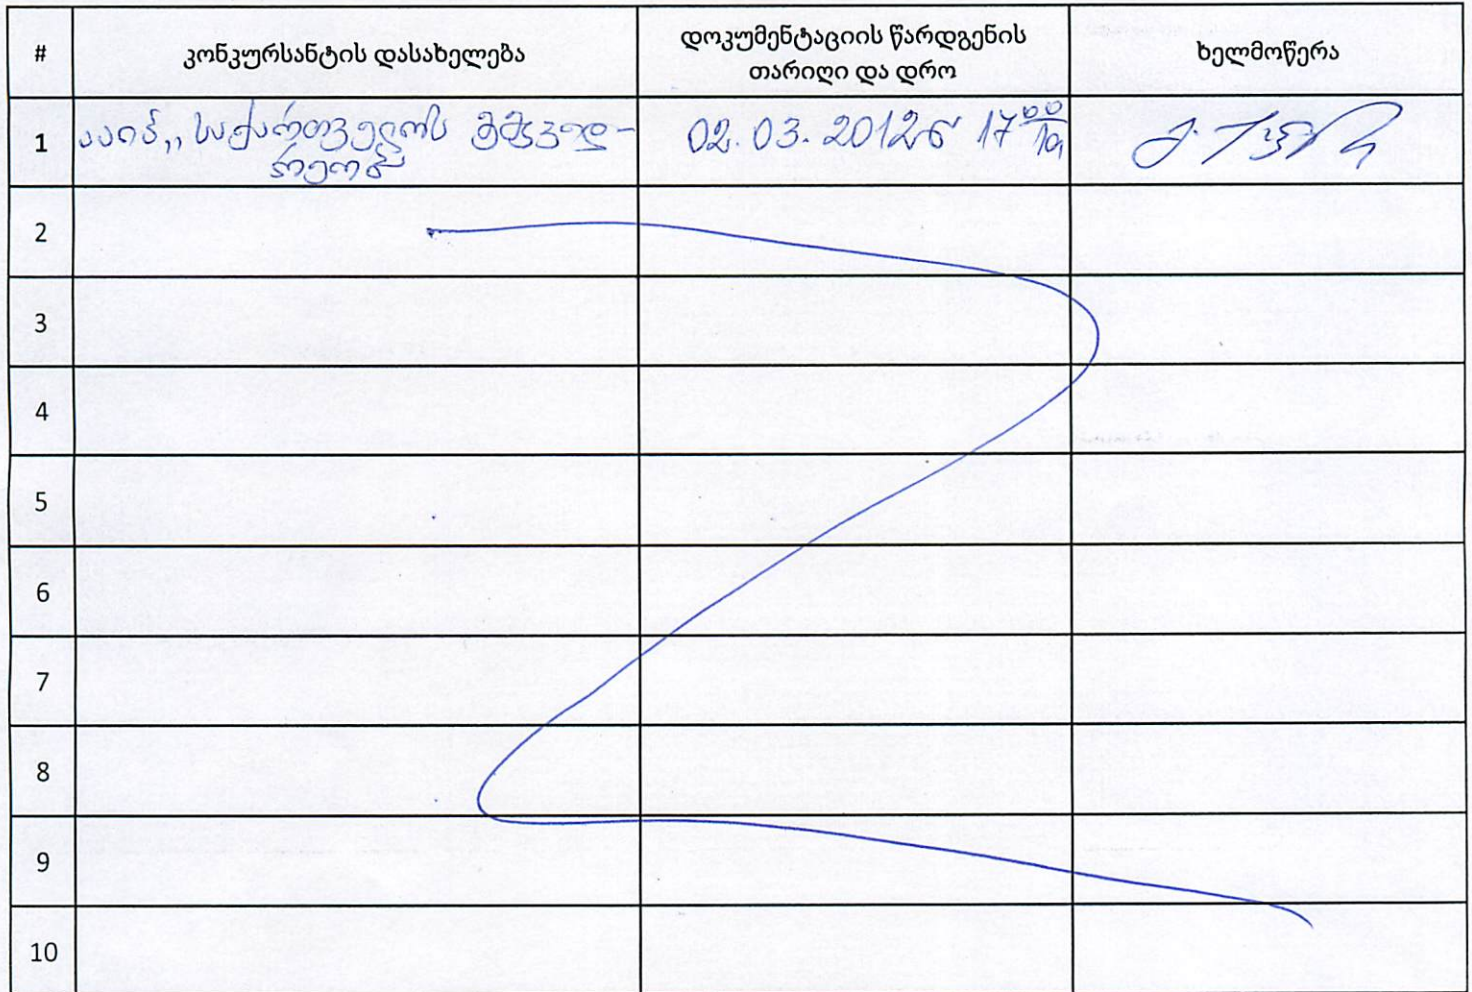 #
კონკურსანტის დასახელება
დოკუმენტაციის წარდგენის
თარიღი და დრო
ხელმოწერა
1
ააიპ „საქართველოს
02.03.2012წ 17⁰⁰
2
3
4
5
6
7
8
9
10